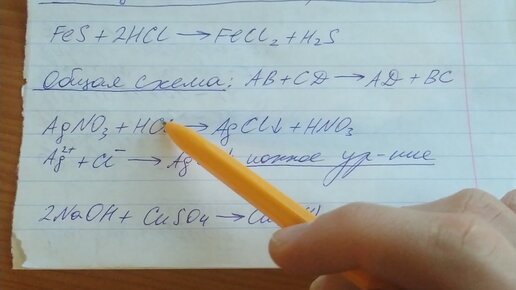 FeS + 2HCl → FeCl₂ + H₂S
Общая схема: AB + CD → AD + BC
AgNO₃ + HCl → AgCl↓ + HNO₃
Ag²⁺ + Cl⁻ → Ag ионное ур-ние
2NaOH + CuSO₄ → Cu